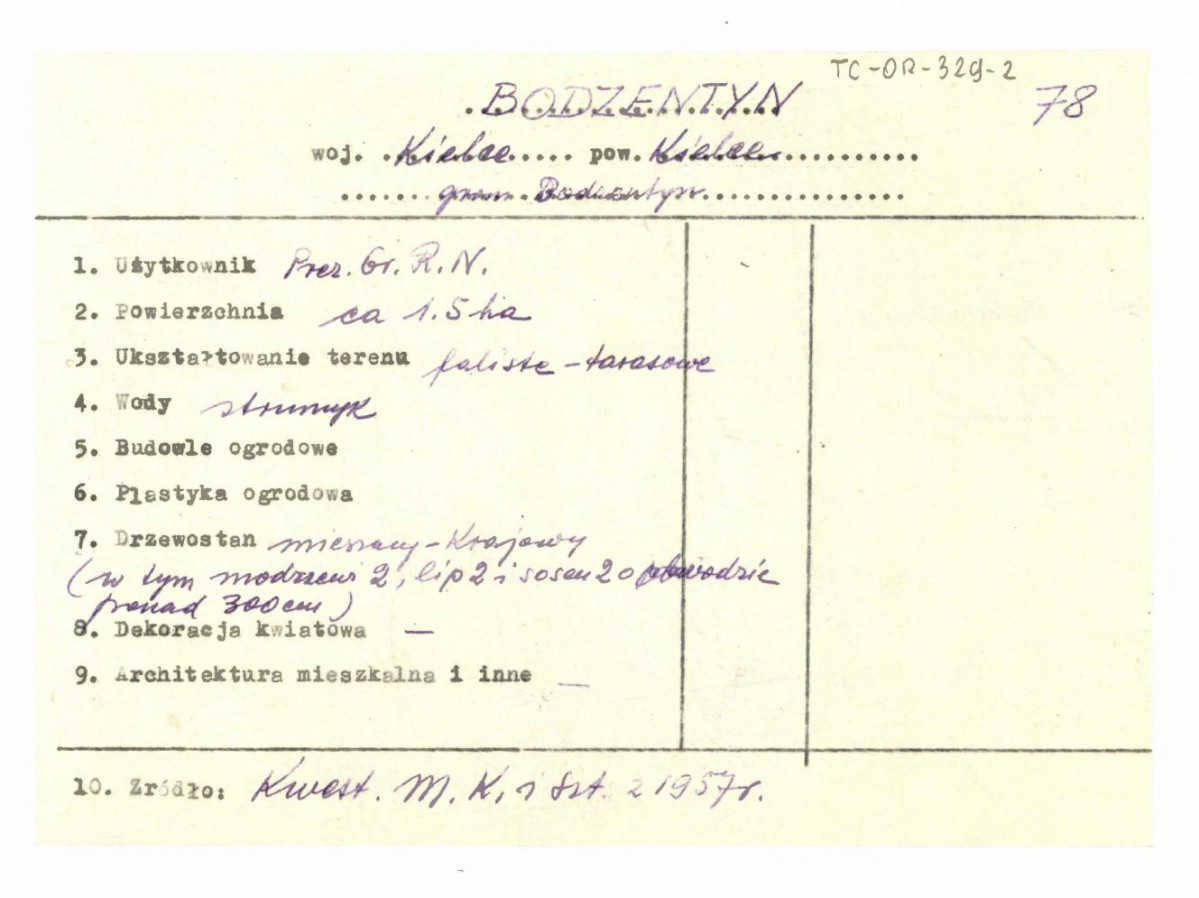 TC-OR-329-2
BODZENTYN 78
woj. Kielce pow. Kielce
grom. Bodzentyn
1. Użytkownik Prez. Gr. R. N.
2. Powierzchnia ca 1.5 ha
3. Ukształtowanie terenu faliste - tarasowe
4. Wody strumyk
5. Budowle ogrodowe
6. Plastyka ogrodowa
7. Drzewostan mieszany - Krajowy
(w tym modrzewi 2, lip 2 i sosen 2 o obwodzie
ponad 300 cm)
8. Dekoracja kwiatowa —
9. Architektura mieszkalna i inne —
10. Zródło: Kwest. M. K. i Szt. z 1957 r.